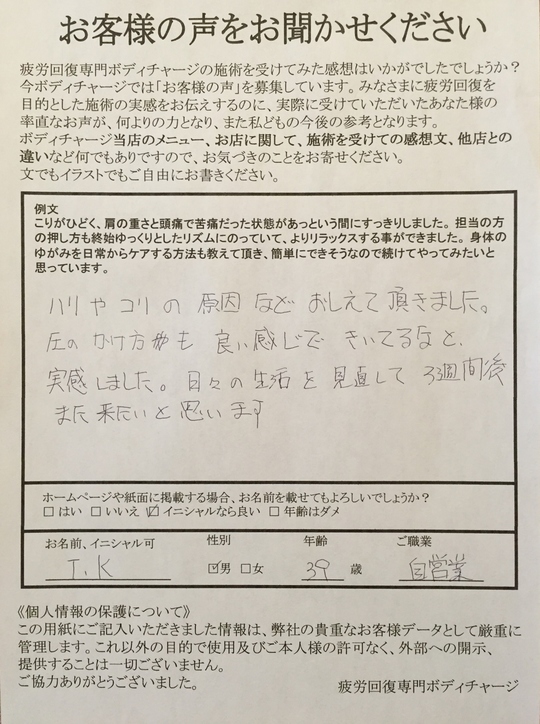 お客様の声をお聞かせください
疲労回復専門ボディチャージの施術を受けてみた感想はいかがでしたでしょうか？
今ボディチャージでは「お客様の声」を募集しています。みなさまに疲労回復を
目的とした施術の実感をお伝えするのに、実際に受けていただいたあなた様の
率直なお声が、何よりの力となり、また私どもの今後の参考となります。
ボディチャージ当店のメニュー、お店に関して、施術を受けての感想文、他店との
違いなど何でもありですので、お気づきのことをお寄せください。
文でもイラストでもご自由にお書きください。
例文
こりがひどく、肩の重さと頭痛で苦痛だった状態があっという間にすっきりしました。担当の方
の押し方も終始ゆっくりとしたリズムにのっていて、よりリラックスする事ができました。身体の
ゆがみを日常からケアする方法も教えて頂き、簡単にできそうなので続けてやってみたいと
思っています。
ハリやコリの原因などおしえて頂きました。
圧のかけ方も良い感じできいてるなと、
実感しました。日々の生活を見直して3週間後
また来たいと思います
ホームページや紙面に掲載する場合、お名前を載せてもよろしいでしょうか？
□はい □いいえ ☑イニシャルなら良い □年齢はダメ
お名前、イニシャル可 性別 年齢 ご職業
T.K ☑男 □女 39 歳 自営業
《個人情報の保護について》
この用紙にご記入いただきました情報は、弊社の貴重なお客様データとして厳重に
管理します。これ以外の目的で使用及びご本人様の許可なく、外部への開示、
提供することは一切ございません。
ご協力ありがとうございました。 疲労回復専門ボディチャージ